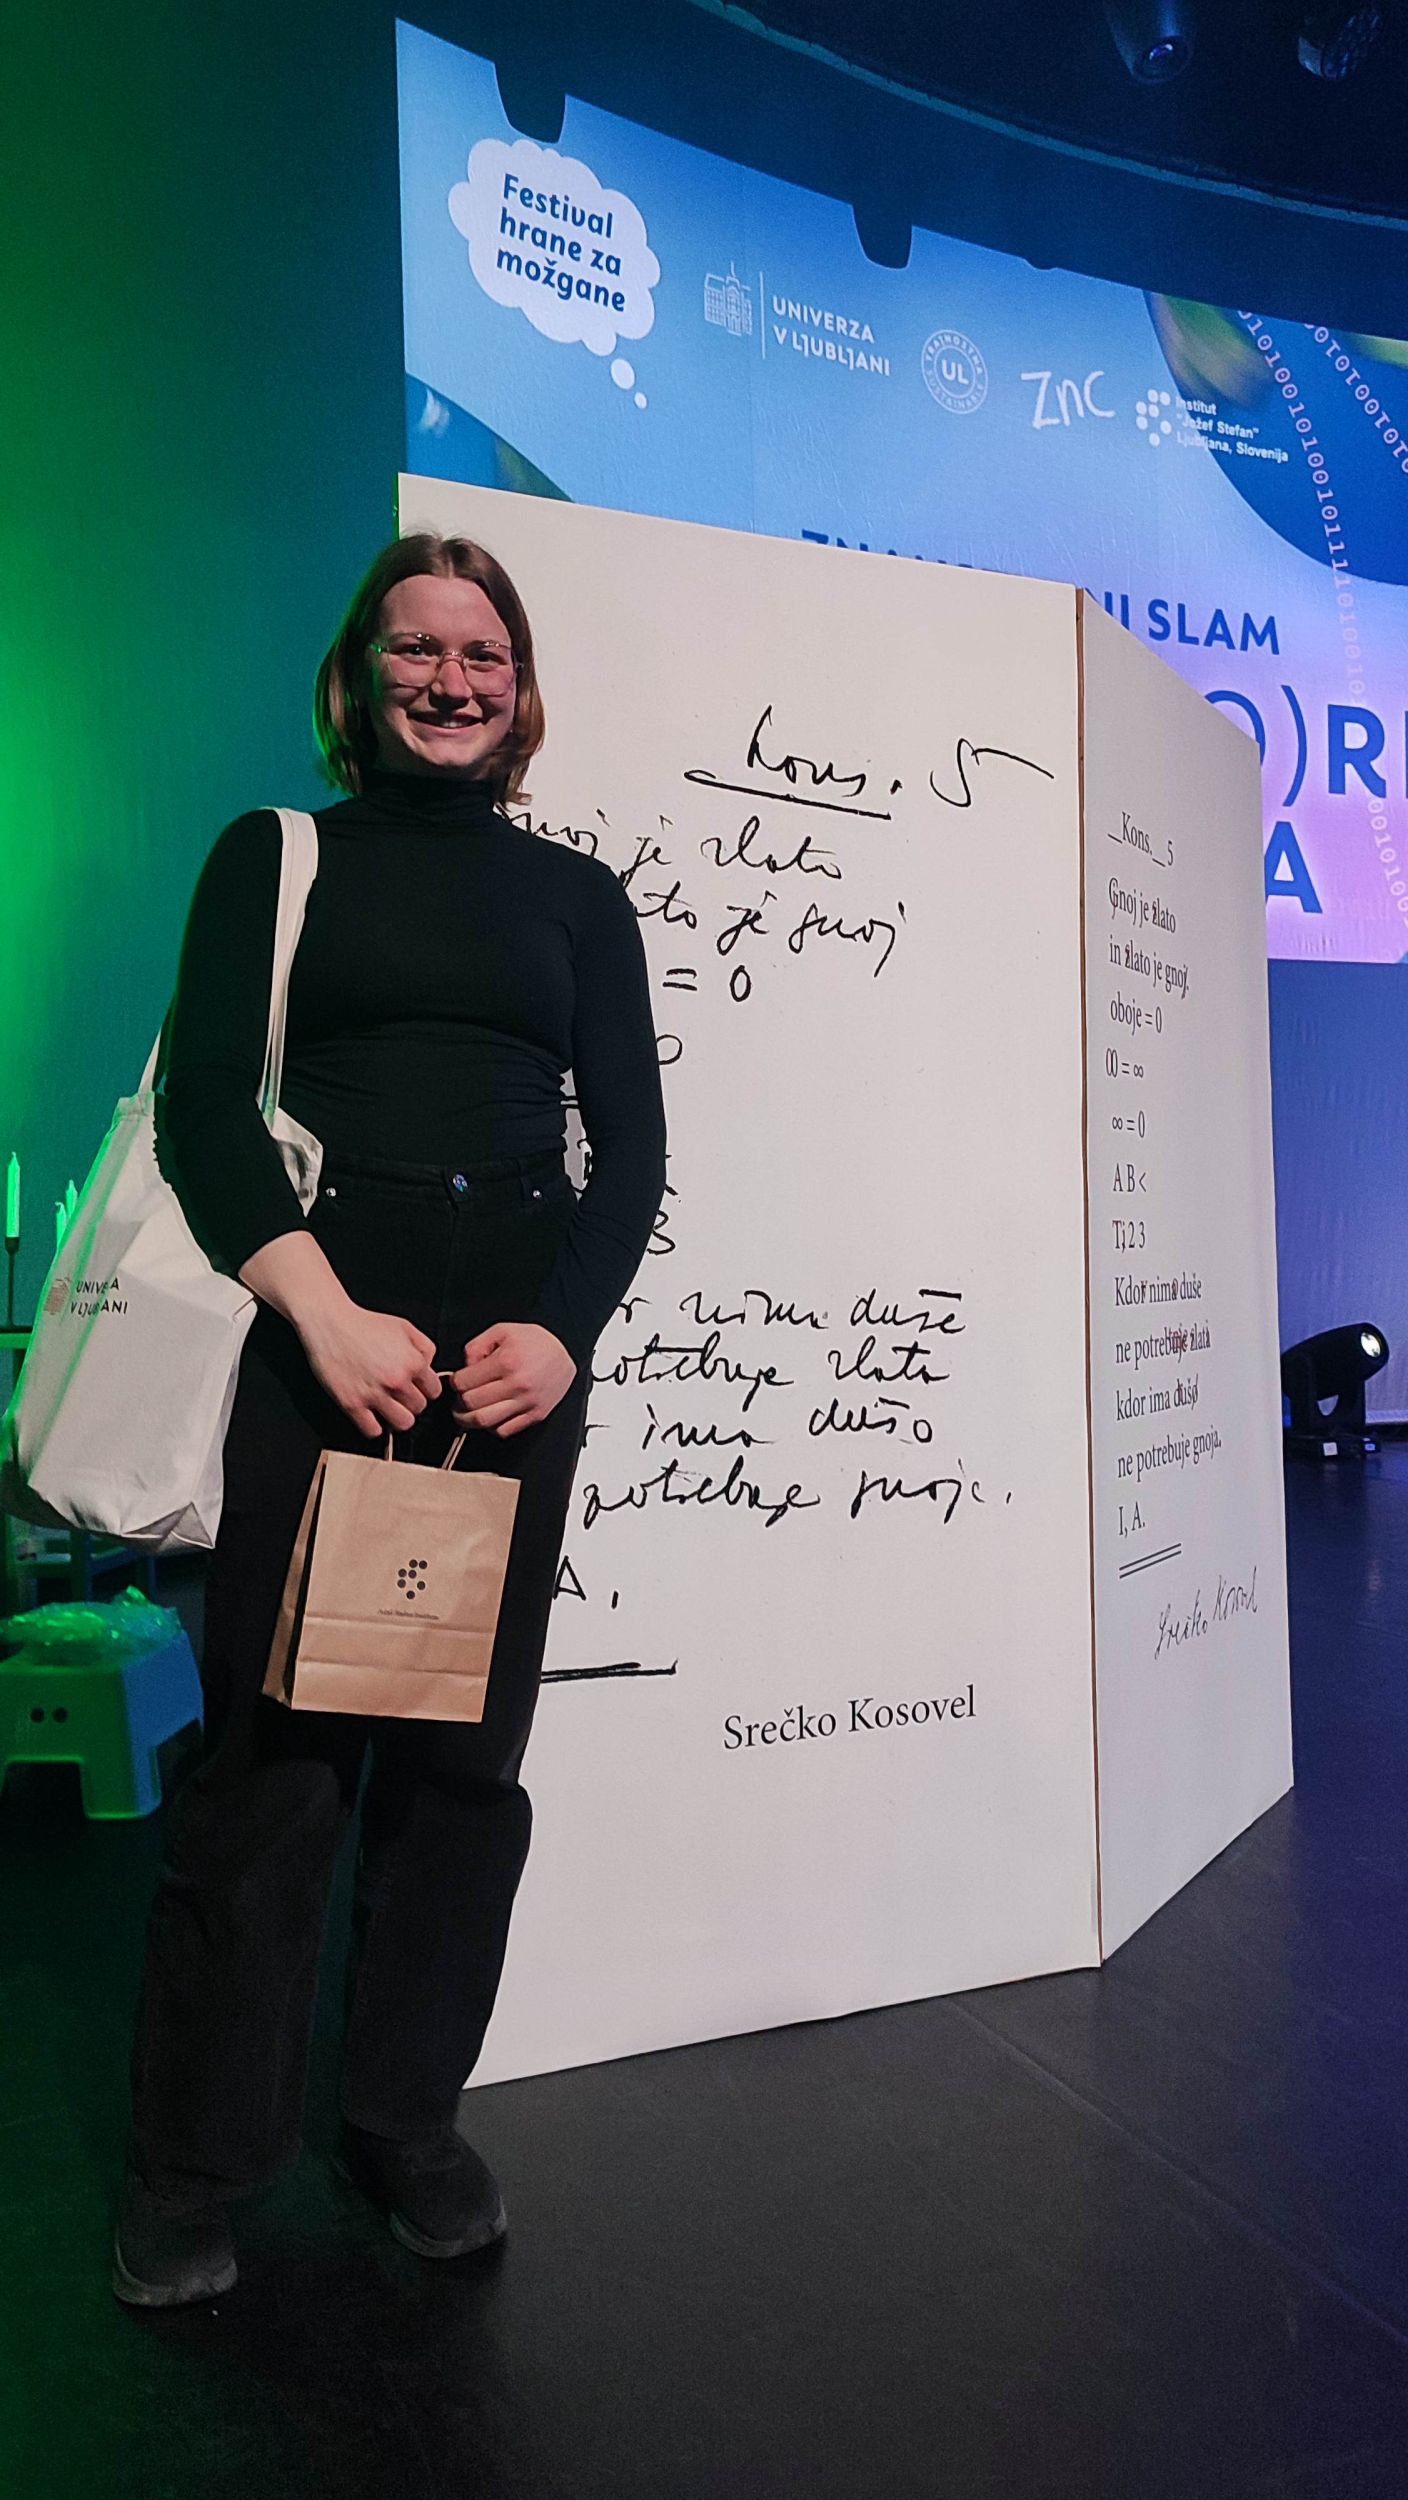 Festival
hrane za
možgane
UNIVERZA
V LJUBLJANI
TRAJNOSTNA
UL
SUSTAINABLE
znc
Institut
"Jožef Stefan"
Ljubljana, Slovenija
SLAM
Kons. 5
je zlato
je gnoj
= 0
nima duše
potrebuje zlata
ima dušo
potrebuje gnoja.
A.
Srečko Kosovel
_Kons._5
Gnoj je zlato
in zlato je gnoj.
oboje = 0
0 = ∞
∞ = 0
A B <
1, 2 3
Kdor nima duše
ne potrebuje zlata
kdor ima dušo
ne potrebuje gnoja.
I, A.
Srečko Kosovel
UNIVERZA
V LJUBLJANI